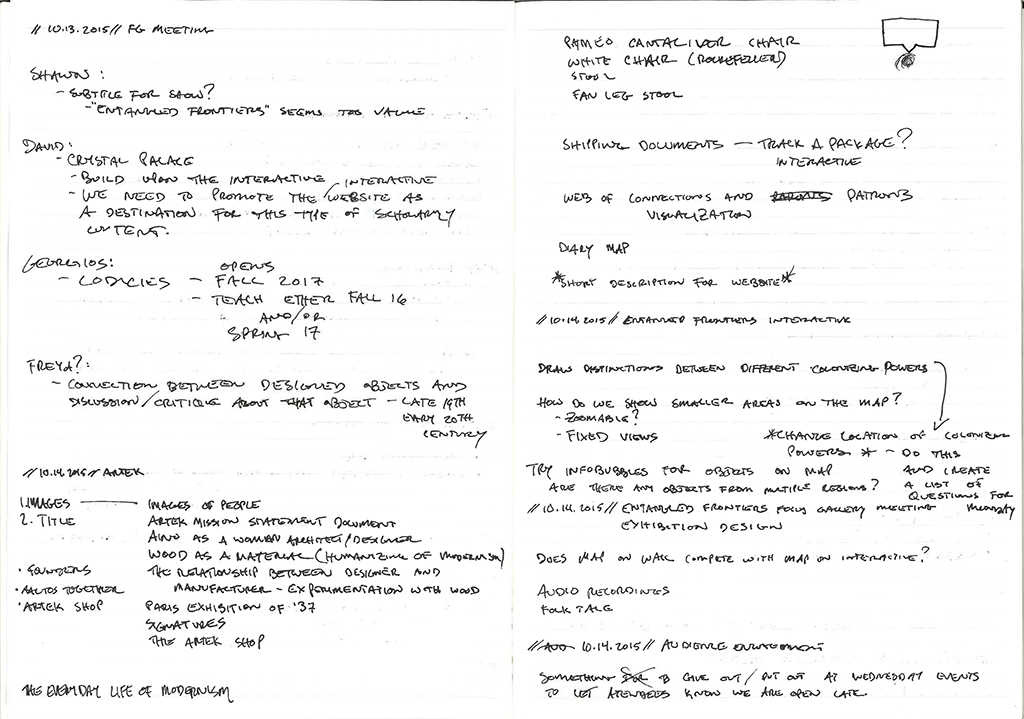 // 10.13.2015 // FG MEETING
SHAWN:
- SUBTITLE FOR SHOW?
- "ENTANGLED FRONTIERS" SEEMS TOO VAUGE
DAVID:
- CRYSTAL PALACE
- BUILD UPON THE INTERACTIVE
- WE NEED TO PROMOTE THE / INTERACTIVE WEBSITE AS
A DESTINATION FOR THIS TYPE OF SCHOLARLY
CONTENT.
GEORGIOS: OPENS
- CODICIES - FALL 2017
- TEACH ETHER FALL 16
AND/OR
SPRING 17
FREYA?:
- CONNECTION BETWEEN DESIGNED OBJECTS AND
DISCUSSION/CRITIQUE ABOUT THAT OBJECT - LATE 19TH
EARY 20TH
CENTURY
// 10.14.2015 // ARTEK
1. IMAGES — IMAGES OF PEOPLE
2. TITLE ARTEK MISSION STATEMENT DOCUMENT
AINO AS A WOMAN ARCHITECT/DESIGNER
WOOD AS A MATERIAL (HUMANIZING OF MODERNISM)
• FOUNDERS THE RELATIONSHIP BETWEEN DESIGNER AND
• AALTOS TOGETHER MANUFACTURER - EXPERIMENTATION WITH WOOD
• ARTEK SHOP PARIS EXHIBITION OF '37
SIGNATURES
THE ARTEK SHOP
THE EVERYDAY LIFE OF MODERNISM
PAIMEO CANTALIVER CHAIR
WHITE CHAIR (ROCKEFELLER)
STOOL
FAN LEG STOOL
SHIPPING DOCUMENTS — TRACK A PACKAGE?
INTERACTIVE
WEB OF CONNECTIONS AND PATRONS
VISUALIZATION
DIARY MAP
*SHORT DESCRIPTION FOR WEBSITE*
// 10.14.2015 // ENTANGLED FRONTIERS INTERACTIVE
DRAW DISTINCTIONS BETWEEN DIFFERENT COLONIZING POWERS
HOW DO WE SHOW SMALLER AREAS ON THE MAP?
- ZOOMABLE?
- FIXED VIEWS
*CHANGE LOCATION OF COLONIZING
POWERS * - DO THIS
AND CREATE
A LIST OF
QUESTIONS FOR
MUNDAY
TRY INFOBUBBLES FOR OBJECTS ON MAP
ARE THERE ANY OBJECTS FROM MULTIPLE REGIONS?
// 10.14.2015 // ENTANGLED FRONTIERS FOCUS GALLERY MEETING
EXHIBITION DESIGN
DOES MAP ON WALL COMPETE WITH MAP ON INTERACTIVE?
AUDIO RECORDINGS
FOLK TALE
// 10.14.2015 // AUDIENCE ENGAGEMENT
SOMETHING TO GIVE OUT / PUT OUT AT WEDNESDAY EVENTS
TO LET ATENDEES KNOW WE ARE OPEN LATE